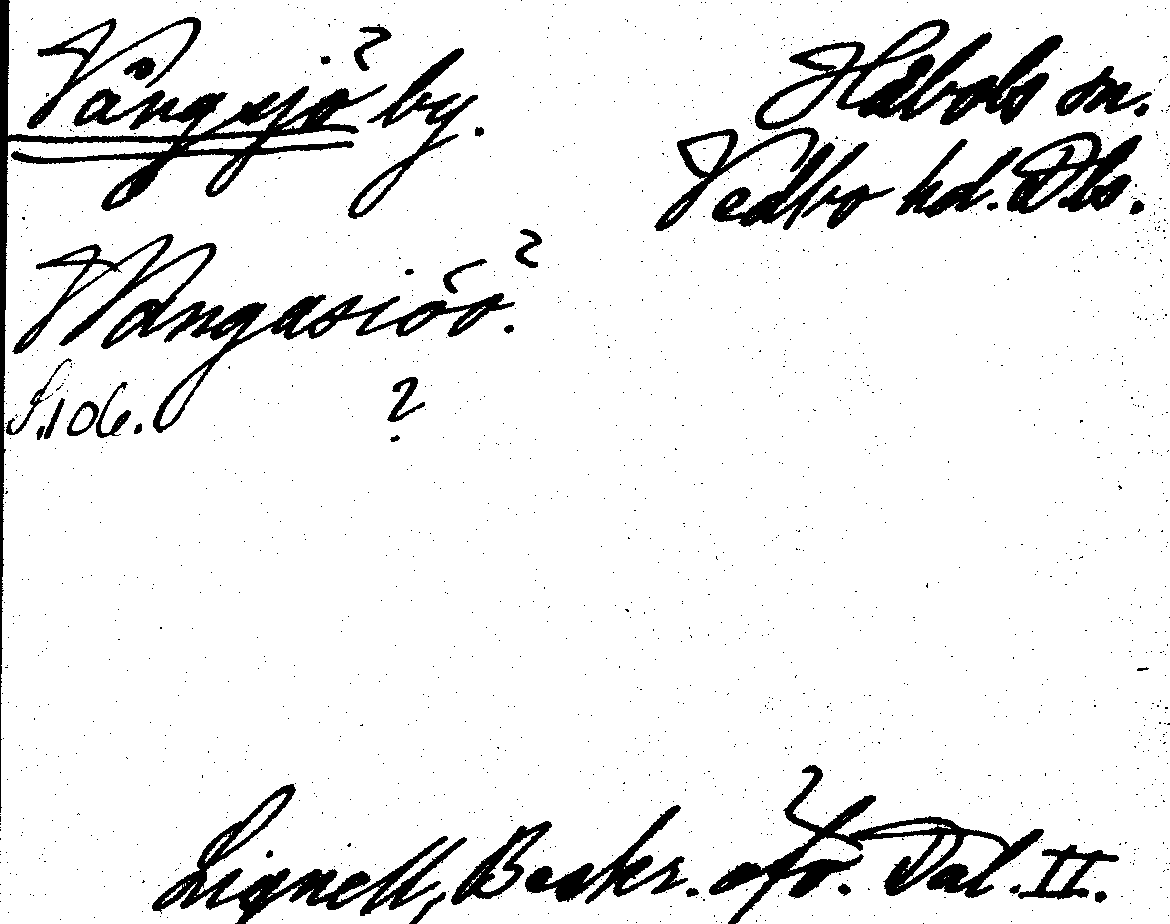 Vångsjö by.
Håbols sn.
Vedbo hd. Dls.
Wångasiöo.
S. 106. ?
Lignell, Beskr. öfv. Dal. II.